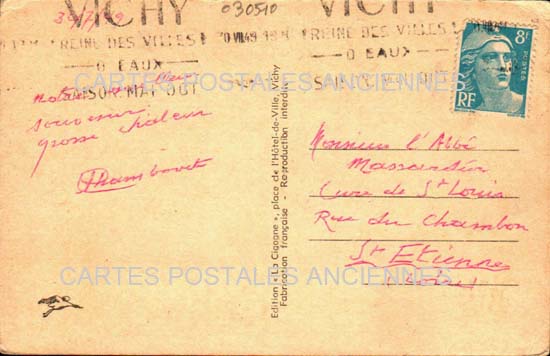 VICHY VICHY
030510
REINE DES VILLES REINE DES VILLES
D'EAUX D'EAUX
SAISON MAI OCT SAISON MAI OCT
8F
POSTES
RF
CARTES POSTALES ANCIENNES
souvenir
grosse chaleur
Chambovet
Edition « La Cigogne », place de l'Hôtel-de-Ville, Vichy
Fabrication française - Reproduction interdite
Monsieur l'Abbé
Cure de St Louis
Rue du Chambon
St Etienne
CARTES POSTALES ANCIENNES